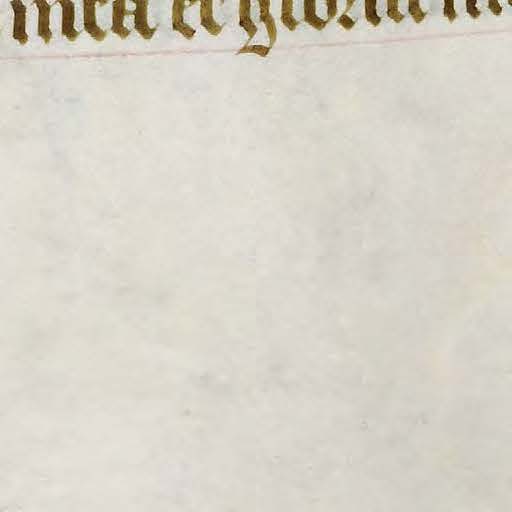 mea et gloria m